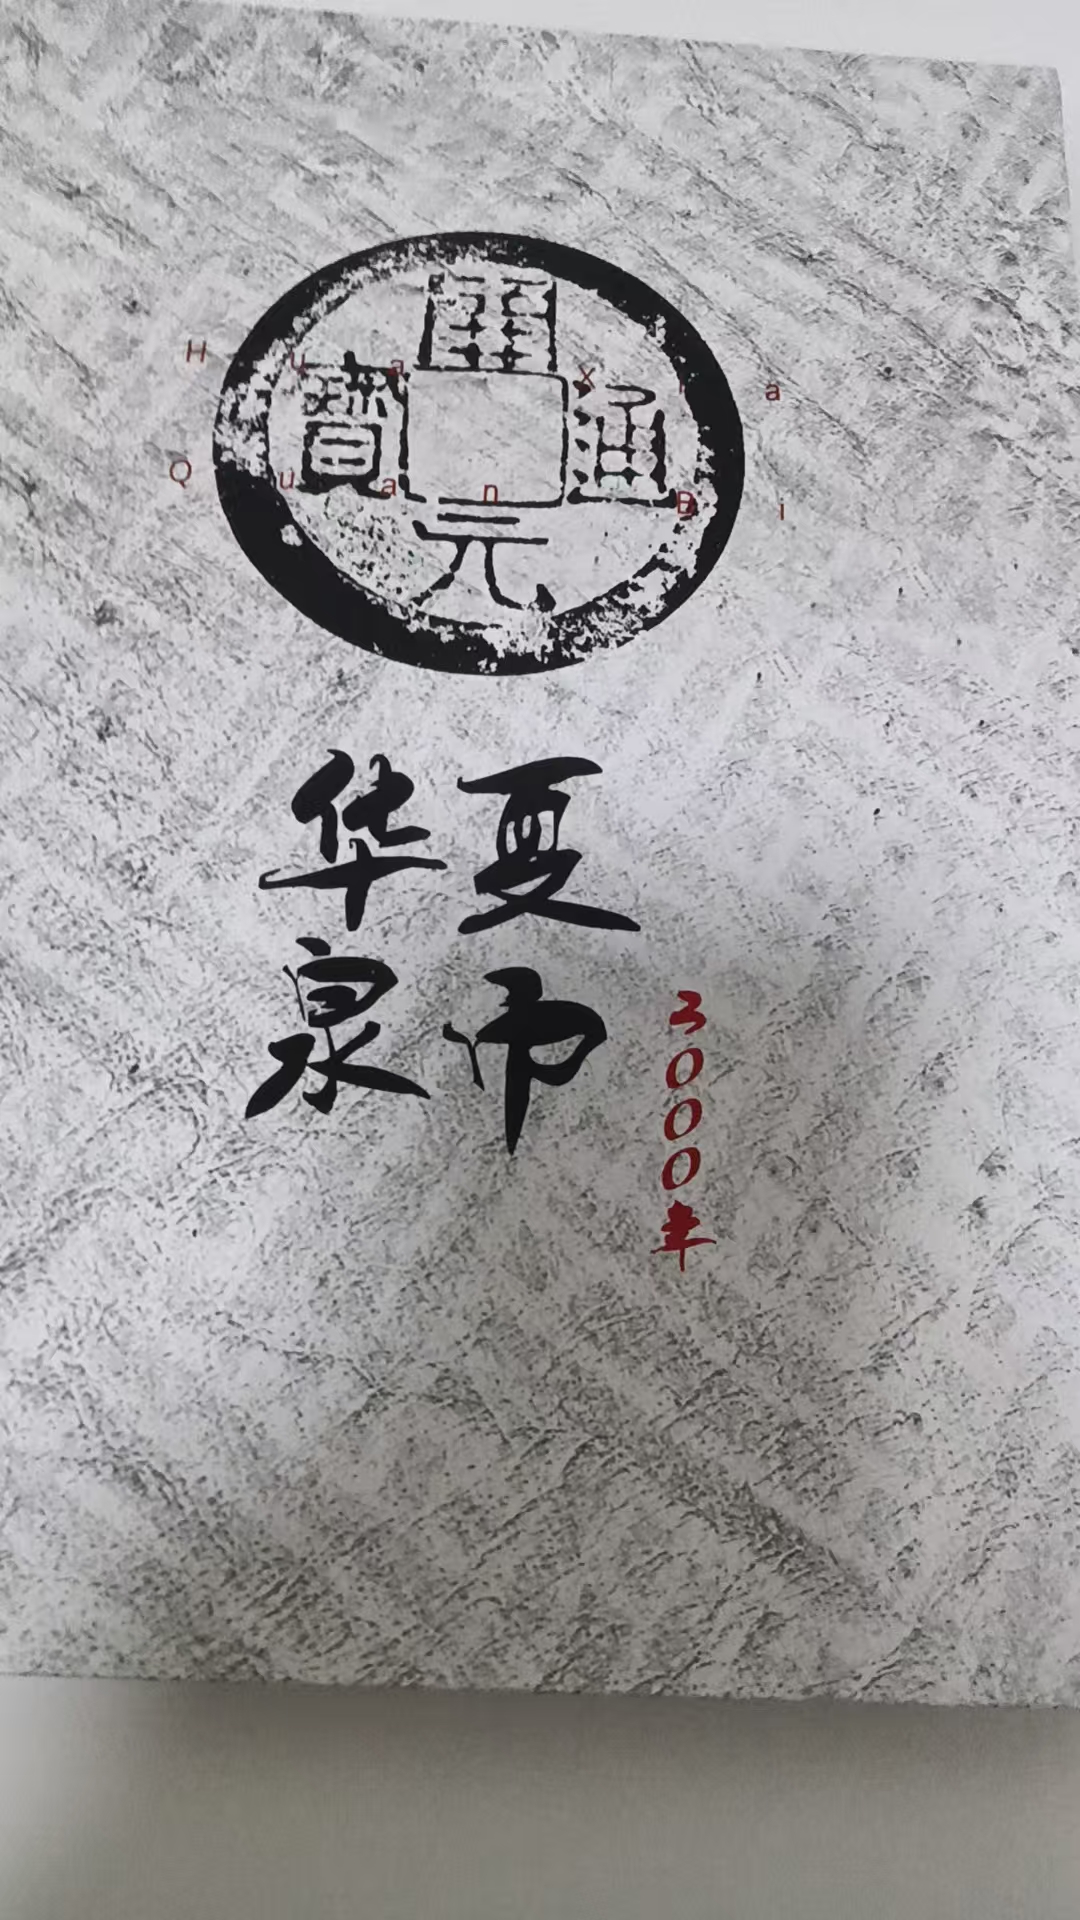 開元通寶
Hua Xia
Quan Bi
华夏
泉币
3000年